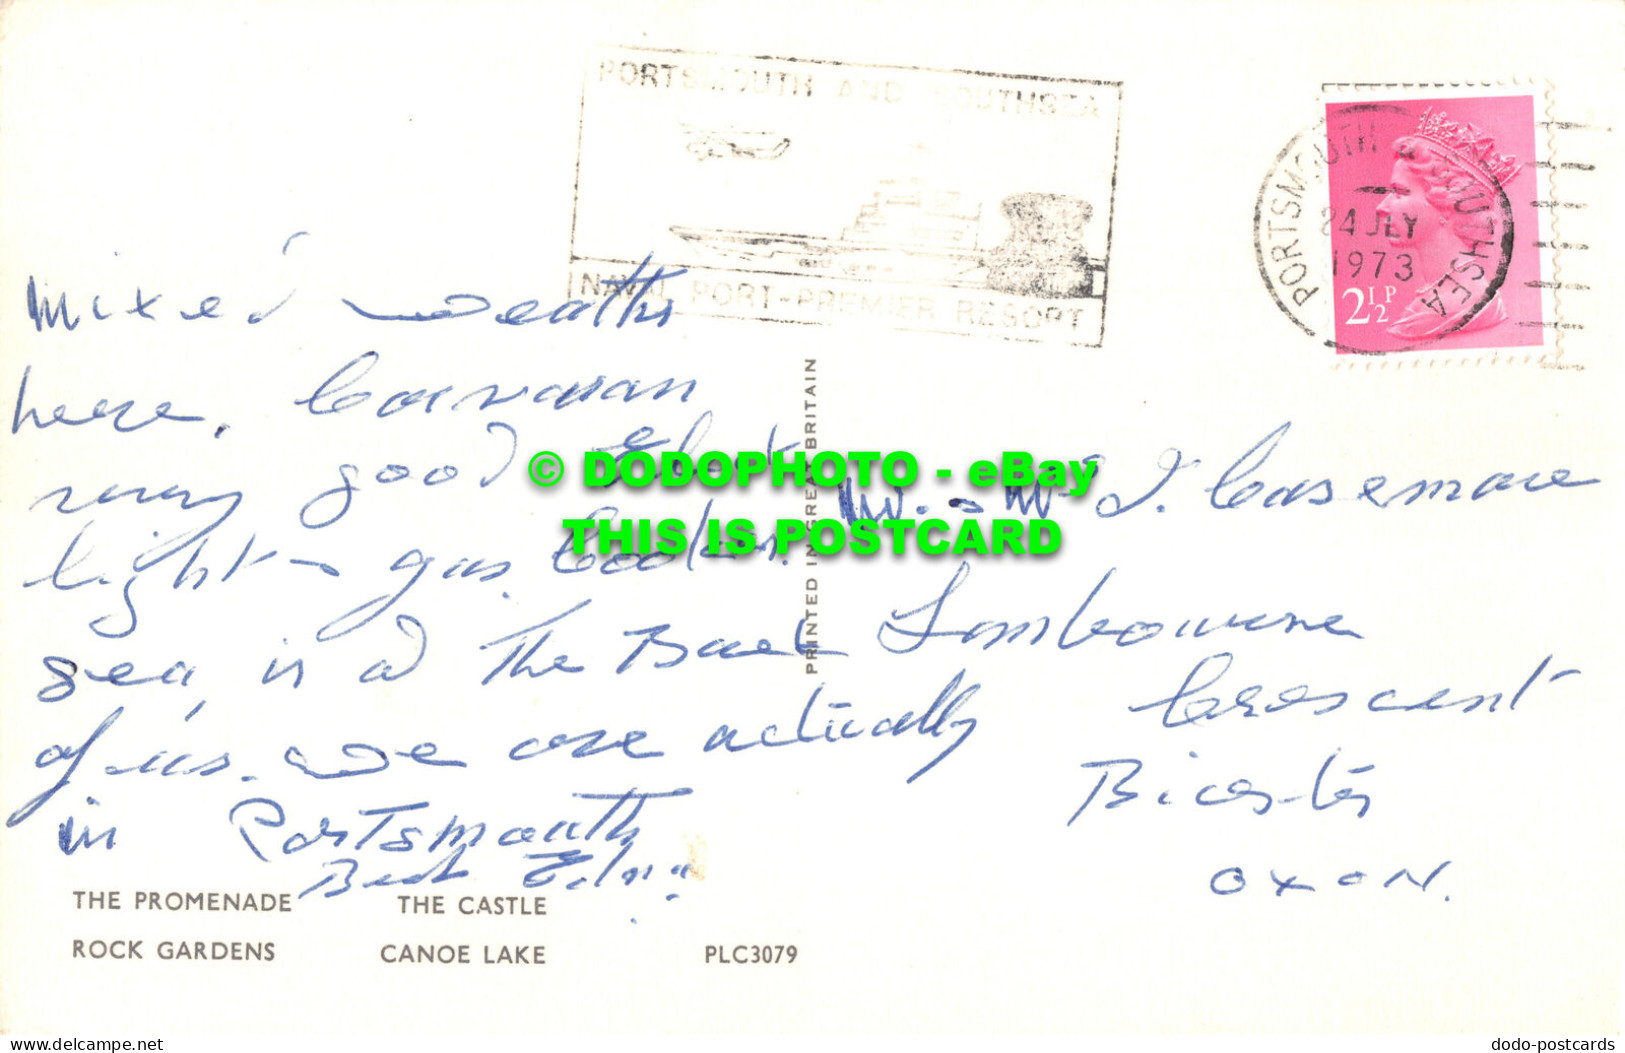 PORTSMOUTH AND SOUTHSEA
NAVAL PORT-PREMIER RESORT
PORTSMOUTH & SOUTHSEA
24 JLY
1973
2½P
Mixed weather
here. Caravan
very good Elect
light & gas Cooker.
sea is at the Back
of us. we are actually
in Portsmouth
Best Edna
Mr. & Mrs J. Casemore
Lambourne
Crescent
Bicester
OXON.
PRINTED IN GREAT BRITAIN
© DODOPHOTO - eBay
THIS IS POSTCARD
THE PROMENADE THE CASTLE
ROCK GARDENS CANOE LAKE PLC3079
Delcampe.net
dodo-postcards